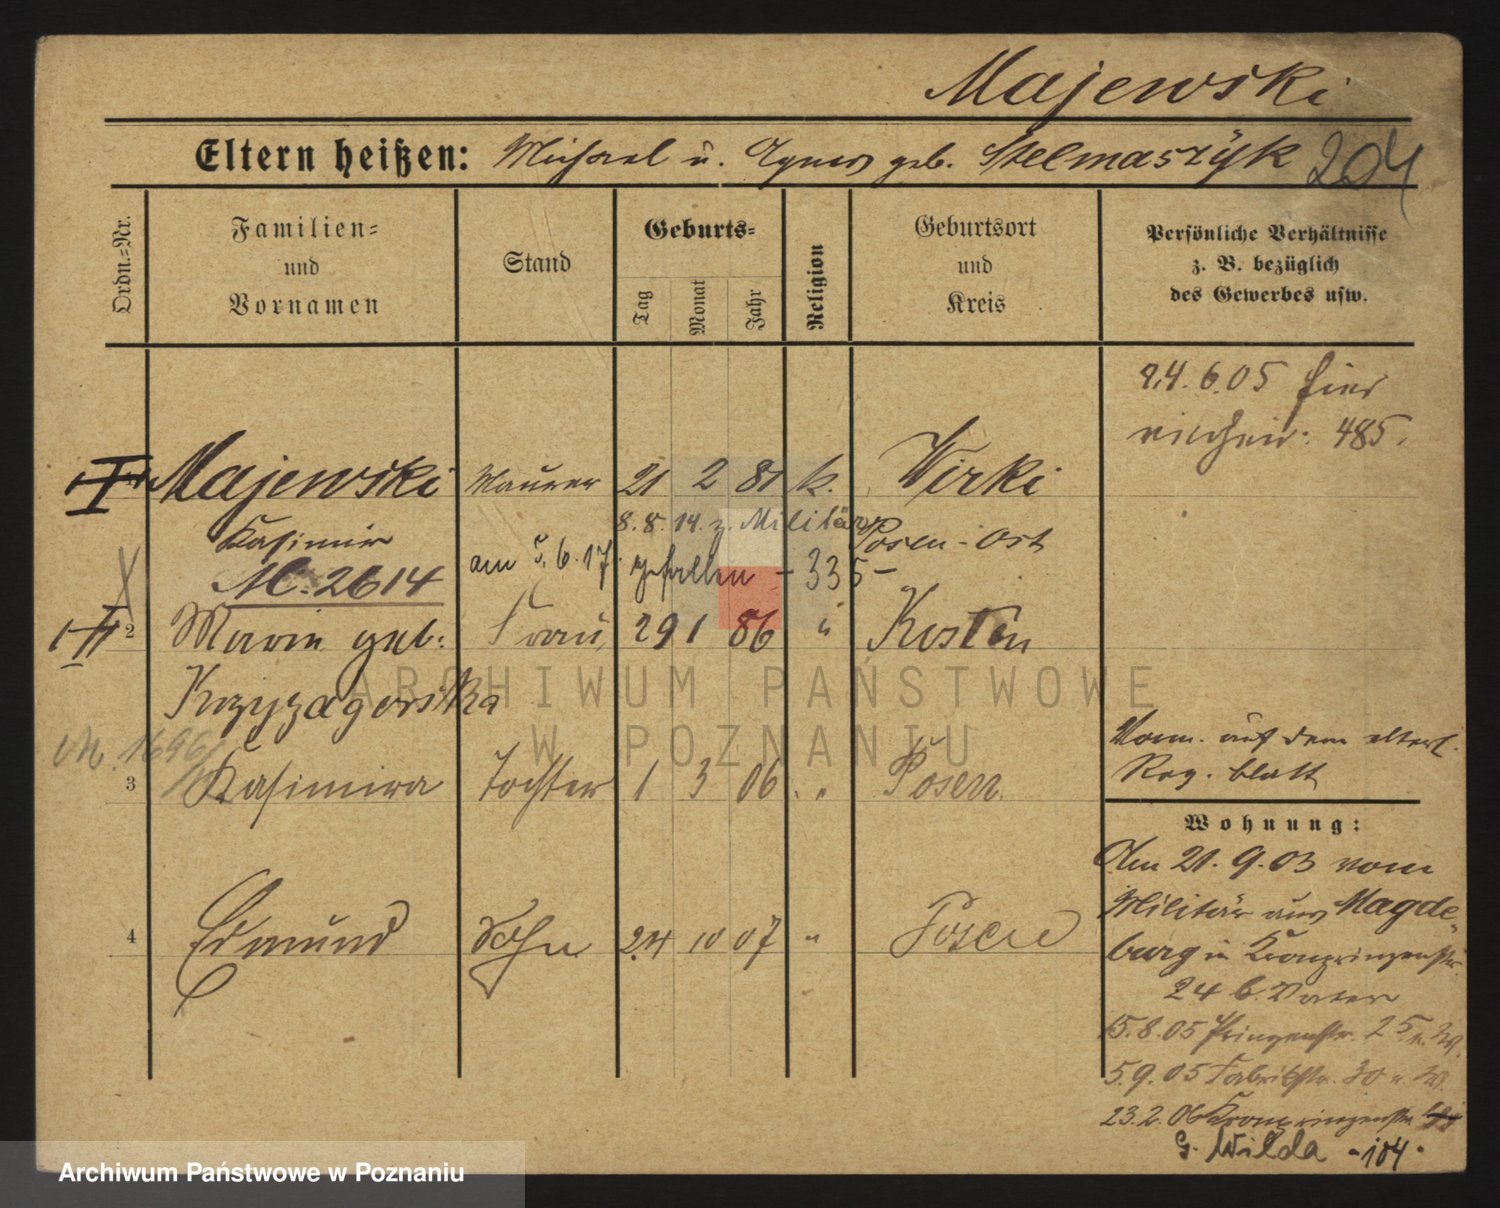 Majewski
Eltern heißen: Michael u. Agnes geb. Stelmaszýk 204
Ordn.-Nr.
Familien-
und
Vornamen
Stand
Geburts-
Tag
Monat
Jahr
Religion
Geburtsort
und
Kreis
Persönliche Verhältnisse
z. B. bezüglich
des Gewerbes usw.
24.6.05 hier
485.
I Majewski Maurer 21 2 81 k. Wirki
Kasimir 8.8.14. z. Militär Posen-Ost
M. 2614 am 5.6.17 gefallen - 335 -
II 2 Marie geb. Frau 29 1 86 " Kosten
Krzyzagorska
M. 1696
3 Kasimira Tochter 1 3 06 " Posen
4 Edmund Sohn 24 10 07 " Posen
Vorm. auf dem elterl.
Reg. blatt
Wohnung:
Am 21.9.03 vom
Militär aus Magde-
burg in Kronprinzenstr.
24 b. Vater
15.8.05 Prinzenstr. 25
5.9.05 Fabrikstr. 30
23.2.06 Kronprinzenstr.
G. Wilda -104-
ARCHIWUM PAŃSTWOWE
W POZNANIU
Archiwum Państwowe w Poznaniu